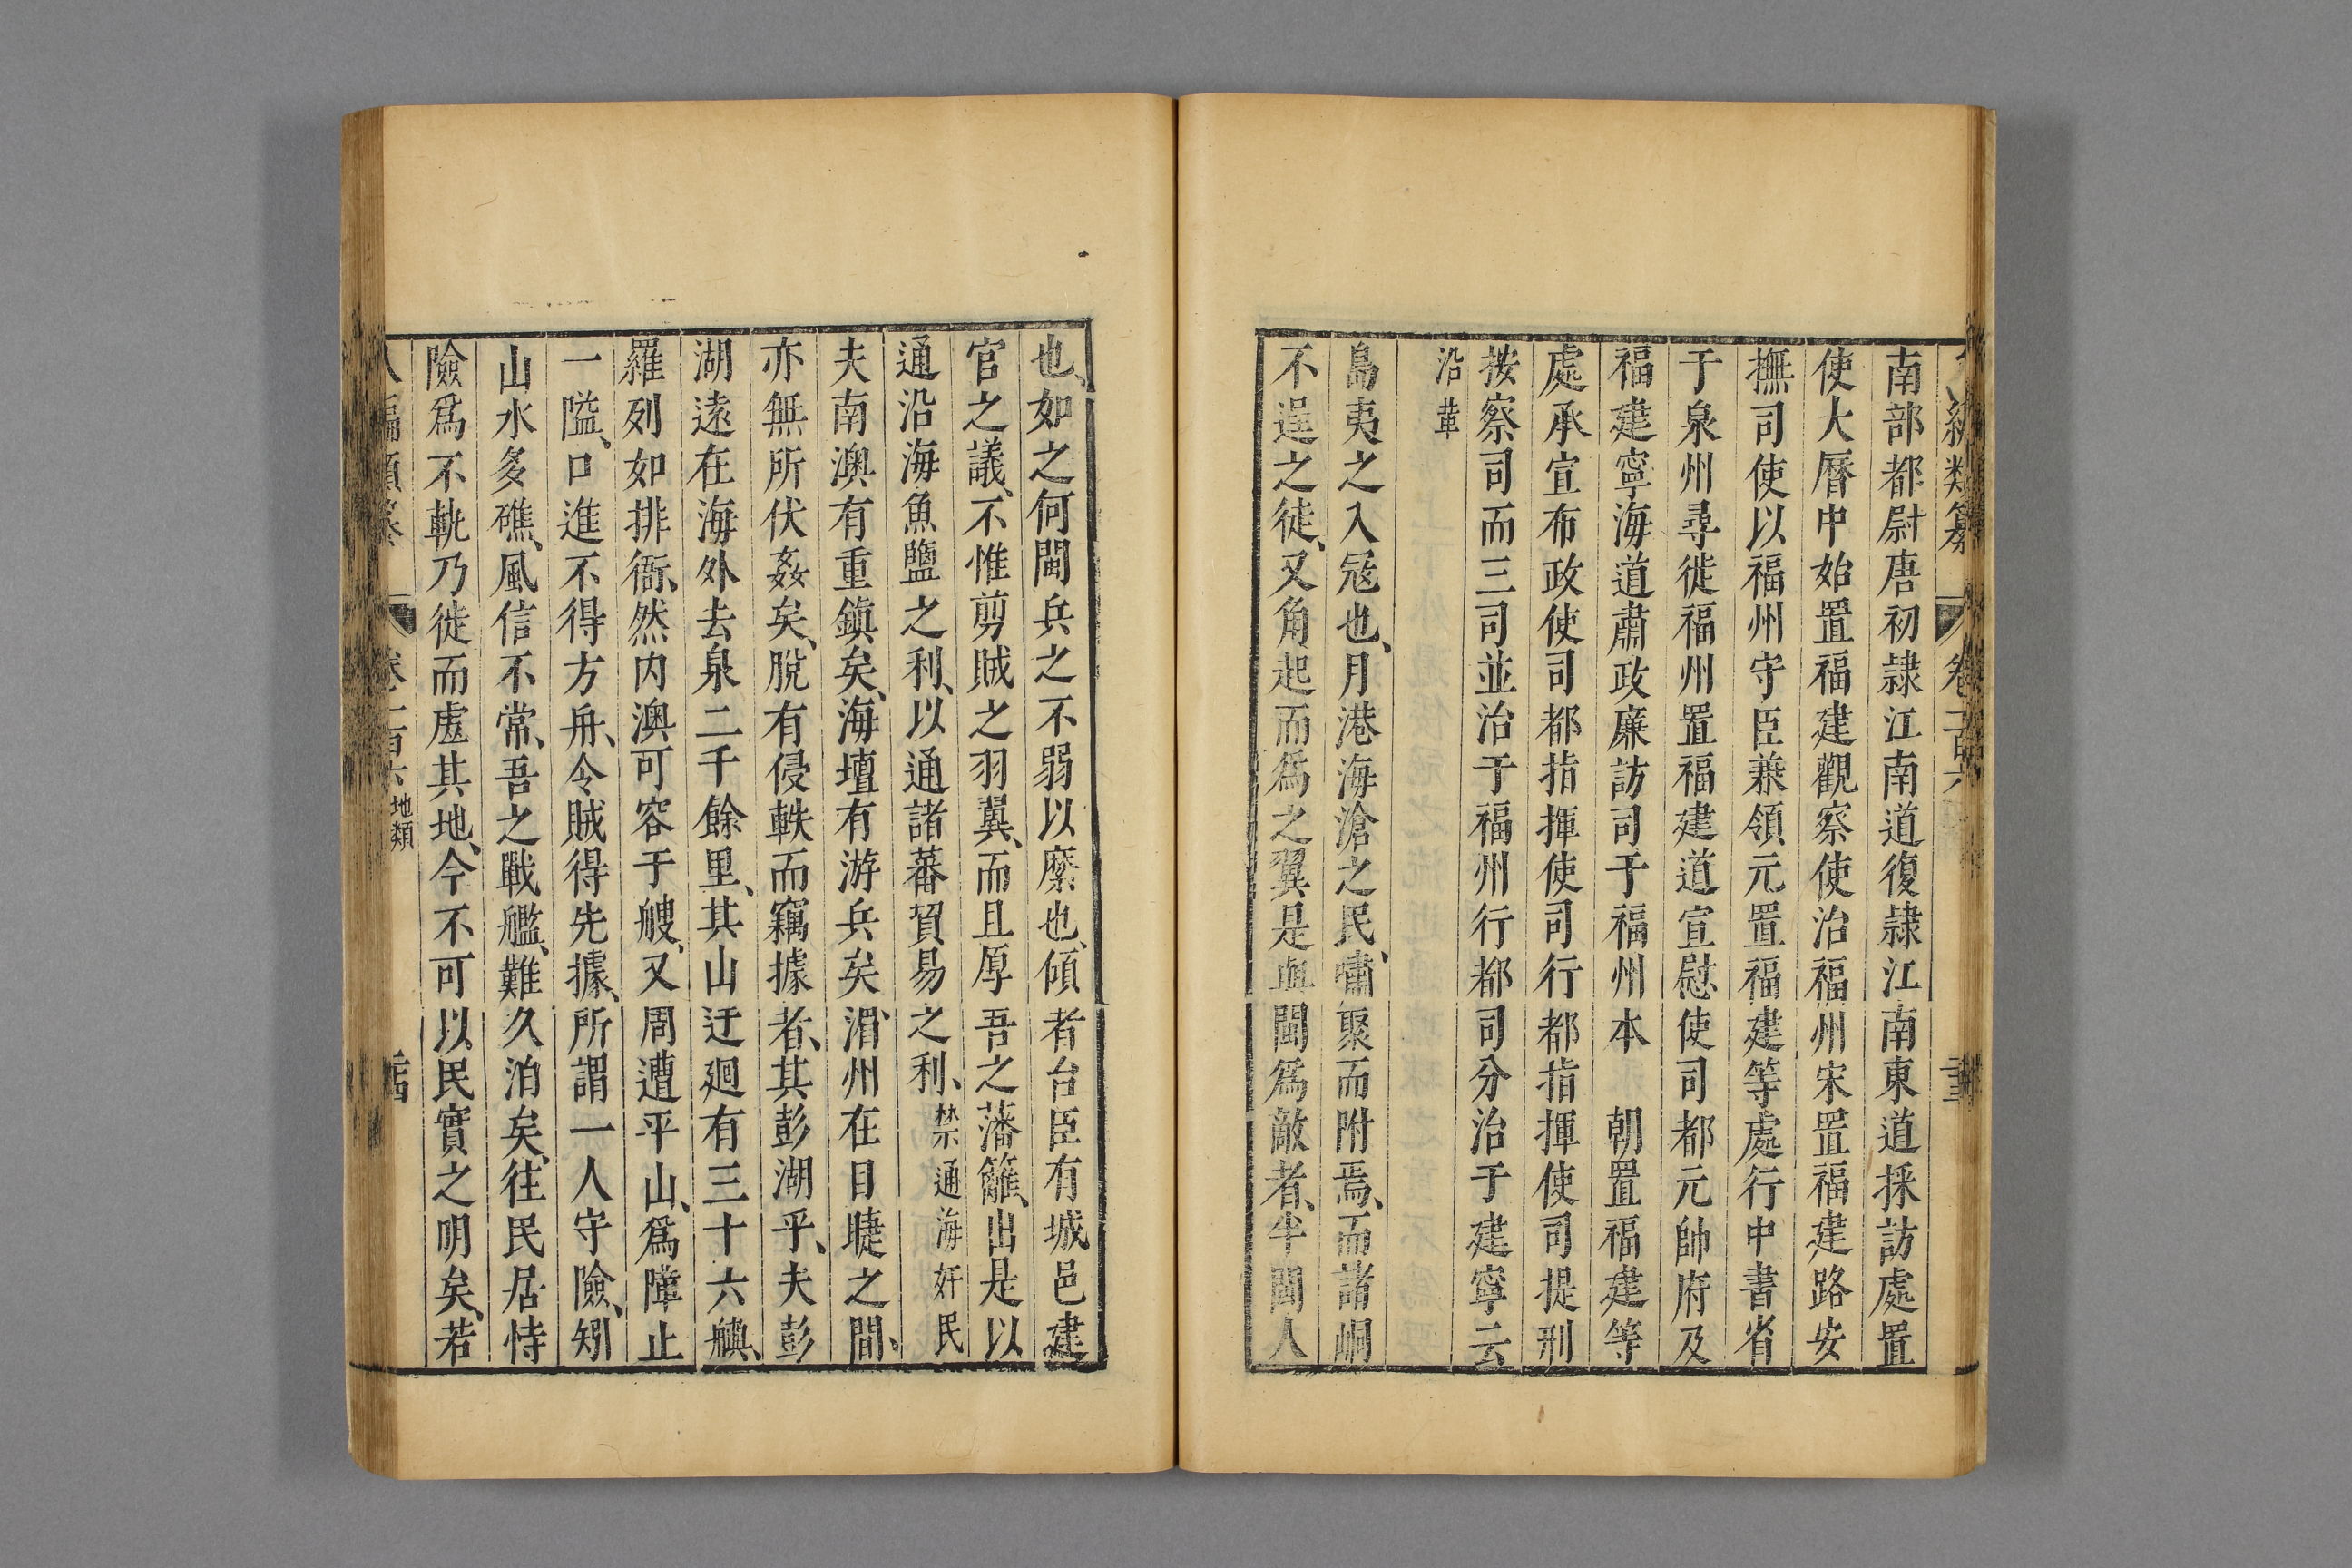 南部都尉唐初隷江南道復隷江南東道採訪處置
使大曆中始置福建觀察使治福州宋置福建路安
撫司使以福州守臣兼領元置福建等處行中書省
于泉州尋徙福州置福建道宣慰使司都元帥府及
福建寧海道肅政廉訪司于福州本　朝置福建等
處承宣布政使司都指揮使司行都指揮使司提刑
按察司而三司並治于福州行都司分治于建寧云
沿革
島夷之入寇也、月港海滄之民、嘯聚而附焉、而諸峒
不逞之徒、又角起而爲之翼是與閩爲敵者、半閩人
也、如之何閩兵之不弱以縻也、傾者台臣有城邑建
官之議、不惟剪賊之羽翼、而且厚吾之藩籬、出是以
通沿海魚鹽之利、以通諸蕃貿易之利、禁通海奸民
夫南澳有重鎭矣、海壇有游兵矣、湄州在目睫之間、
亦無所伏姦矣、脫有侵軼而竊據者、其彭湖乎、夫彭
湖遠在海外去泉二千餘里、其山迂廻有三十六嶼、
羅列如排衙、然內澳可容千艘、又周遭平山、爲障止
一隘、口進不得方舟、令賊得先據、所謂一人守險、矧
山水多礁、風信不常、吾之戰艦、難久泊矣、往民居恃
險爲不軌乃徙而虛其地、今不可以民實之明矣、若
八編類纂　卷二百六　地類